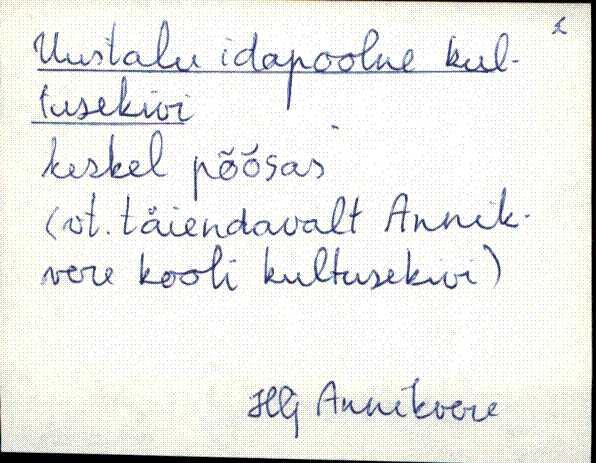 2
Uustalu idapoolne kul-
tusekivi
keskel põõsas
(vt. täiendavalt Annik-
vere kooli kultusekivi)
Annikvere